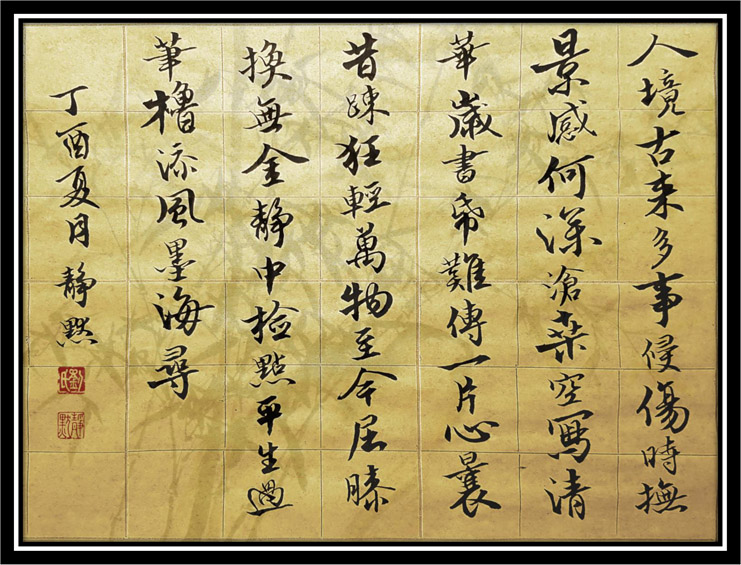 人境古来多事侵傷時撫
景感何深滄桑空寫清
華歲書帛難傳一片心曩
昔踈狂輕萬物至今屈膝
換無金靜中检點平生過
筆櫓添風墨海尋
丁酉夏月 靜默
劉氏
靜默